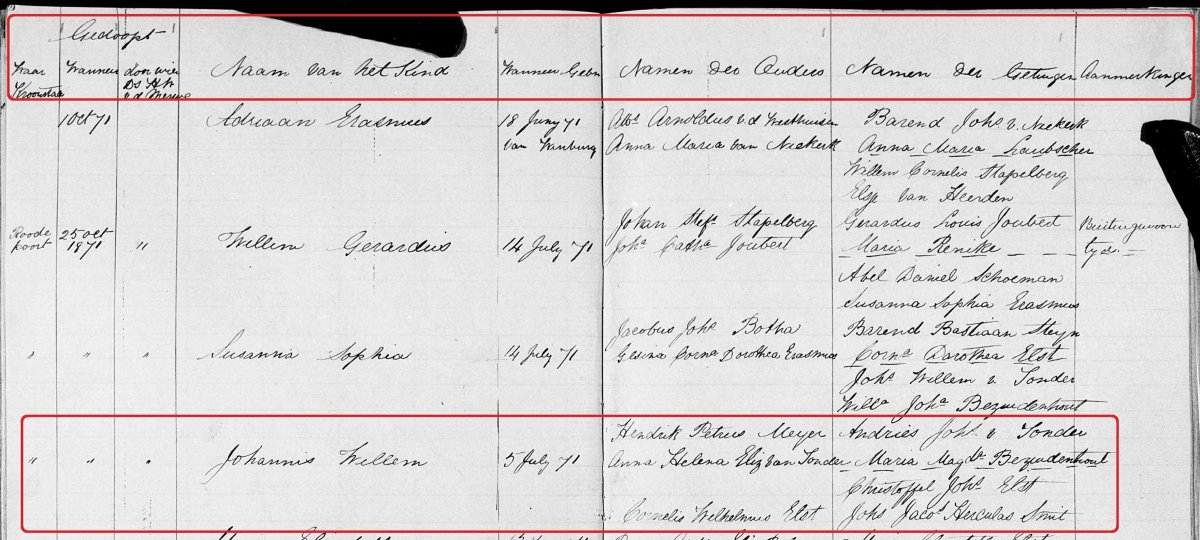 Gedoopt
Waar Wanneer door wien Naam van het Kind Wanneer Gebn Namen der Ouders Namen der Getuigen Aanmerkingen
Kroonstad Ds H W
v d Merwe
1 Oct 71 Adriaan Erasmus 18 Juny 71 Abm Arnoldus v d Westhuisen Barend Johs v. Niekerk
van Wanburg Anna Maria van Niekerk Anna Maria Laubscher
Willem Cornelis Stapelberg
Elsp van Heerden
Johan Stefs Stapelberg Gerardus Louis Joubert
Roode 25 Oct " Willem Gerardus 14 July 71 Joha Catha Joubert Maria Renike Buitengewoon
poort 1871 tyd
Abel Daniel Schoeman
Susanna Sophia Erasmus
Jacobus Johs Botha Barend Bastiaan Steyn
" " " Susanna Sophia 14 July 71 Gesina Corna Dorothea Erasmus Corna Dorothea Elst
Johs Willem v Tonder
Willa Joha Bezuidenhout
Hendrik Petrus Meyer Andries Johs v Tonder
" " " Johannis Willem 5 July 71 Anna Helena Eliz van Tonder Maria Magda Bezuidenhout
Christoffel Johs Elst
Cornelis Wilhelmus Elst Johs Jacos Herculas Smit